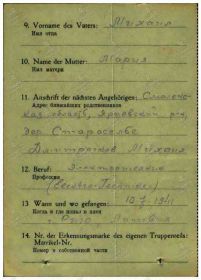 9. Vorname des Vaters: Михаил
Имя отца
10. Name der Mutter: Мария
Имя матери
11. Anschrift der nächsten Angehörigen: Смолен-
Адрес ближайших родственников
ская область, р-н,
дер Староселье
Михаил
12. Beruf: Электротехник
Профессия
(Elektro-Techniker)
13 Wann und wo gefangen: 10.7.1941
Когда и где попал в плен
г.
14. Nr. der Erkennungsmarke des eigenen Truppenteils:
Matrikel-Nr.
Номер в собственной части